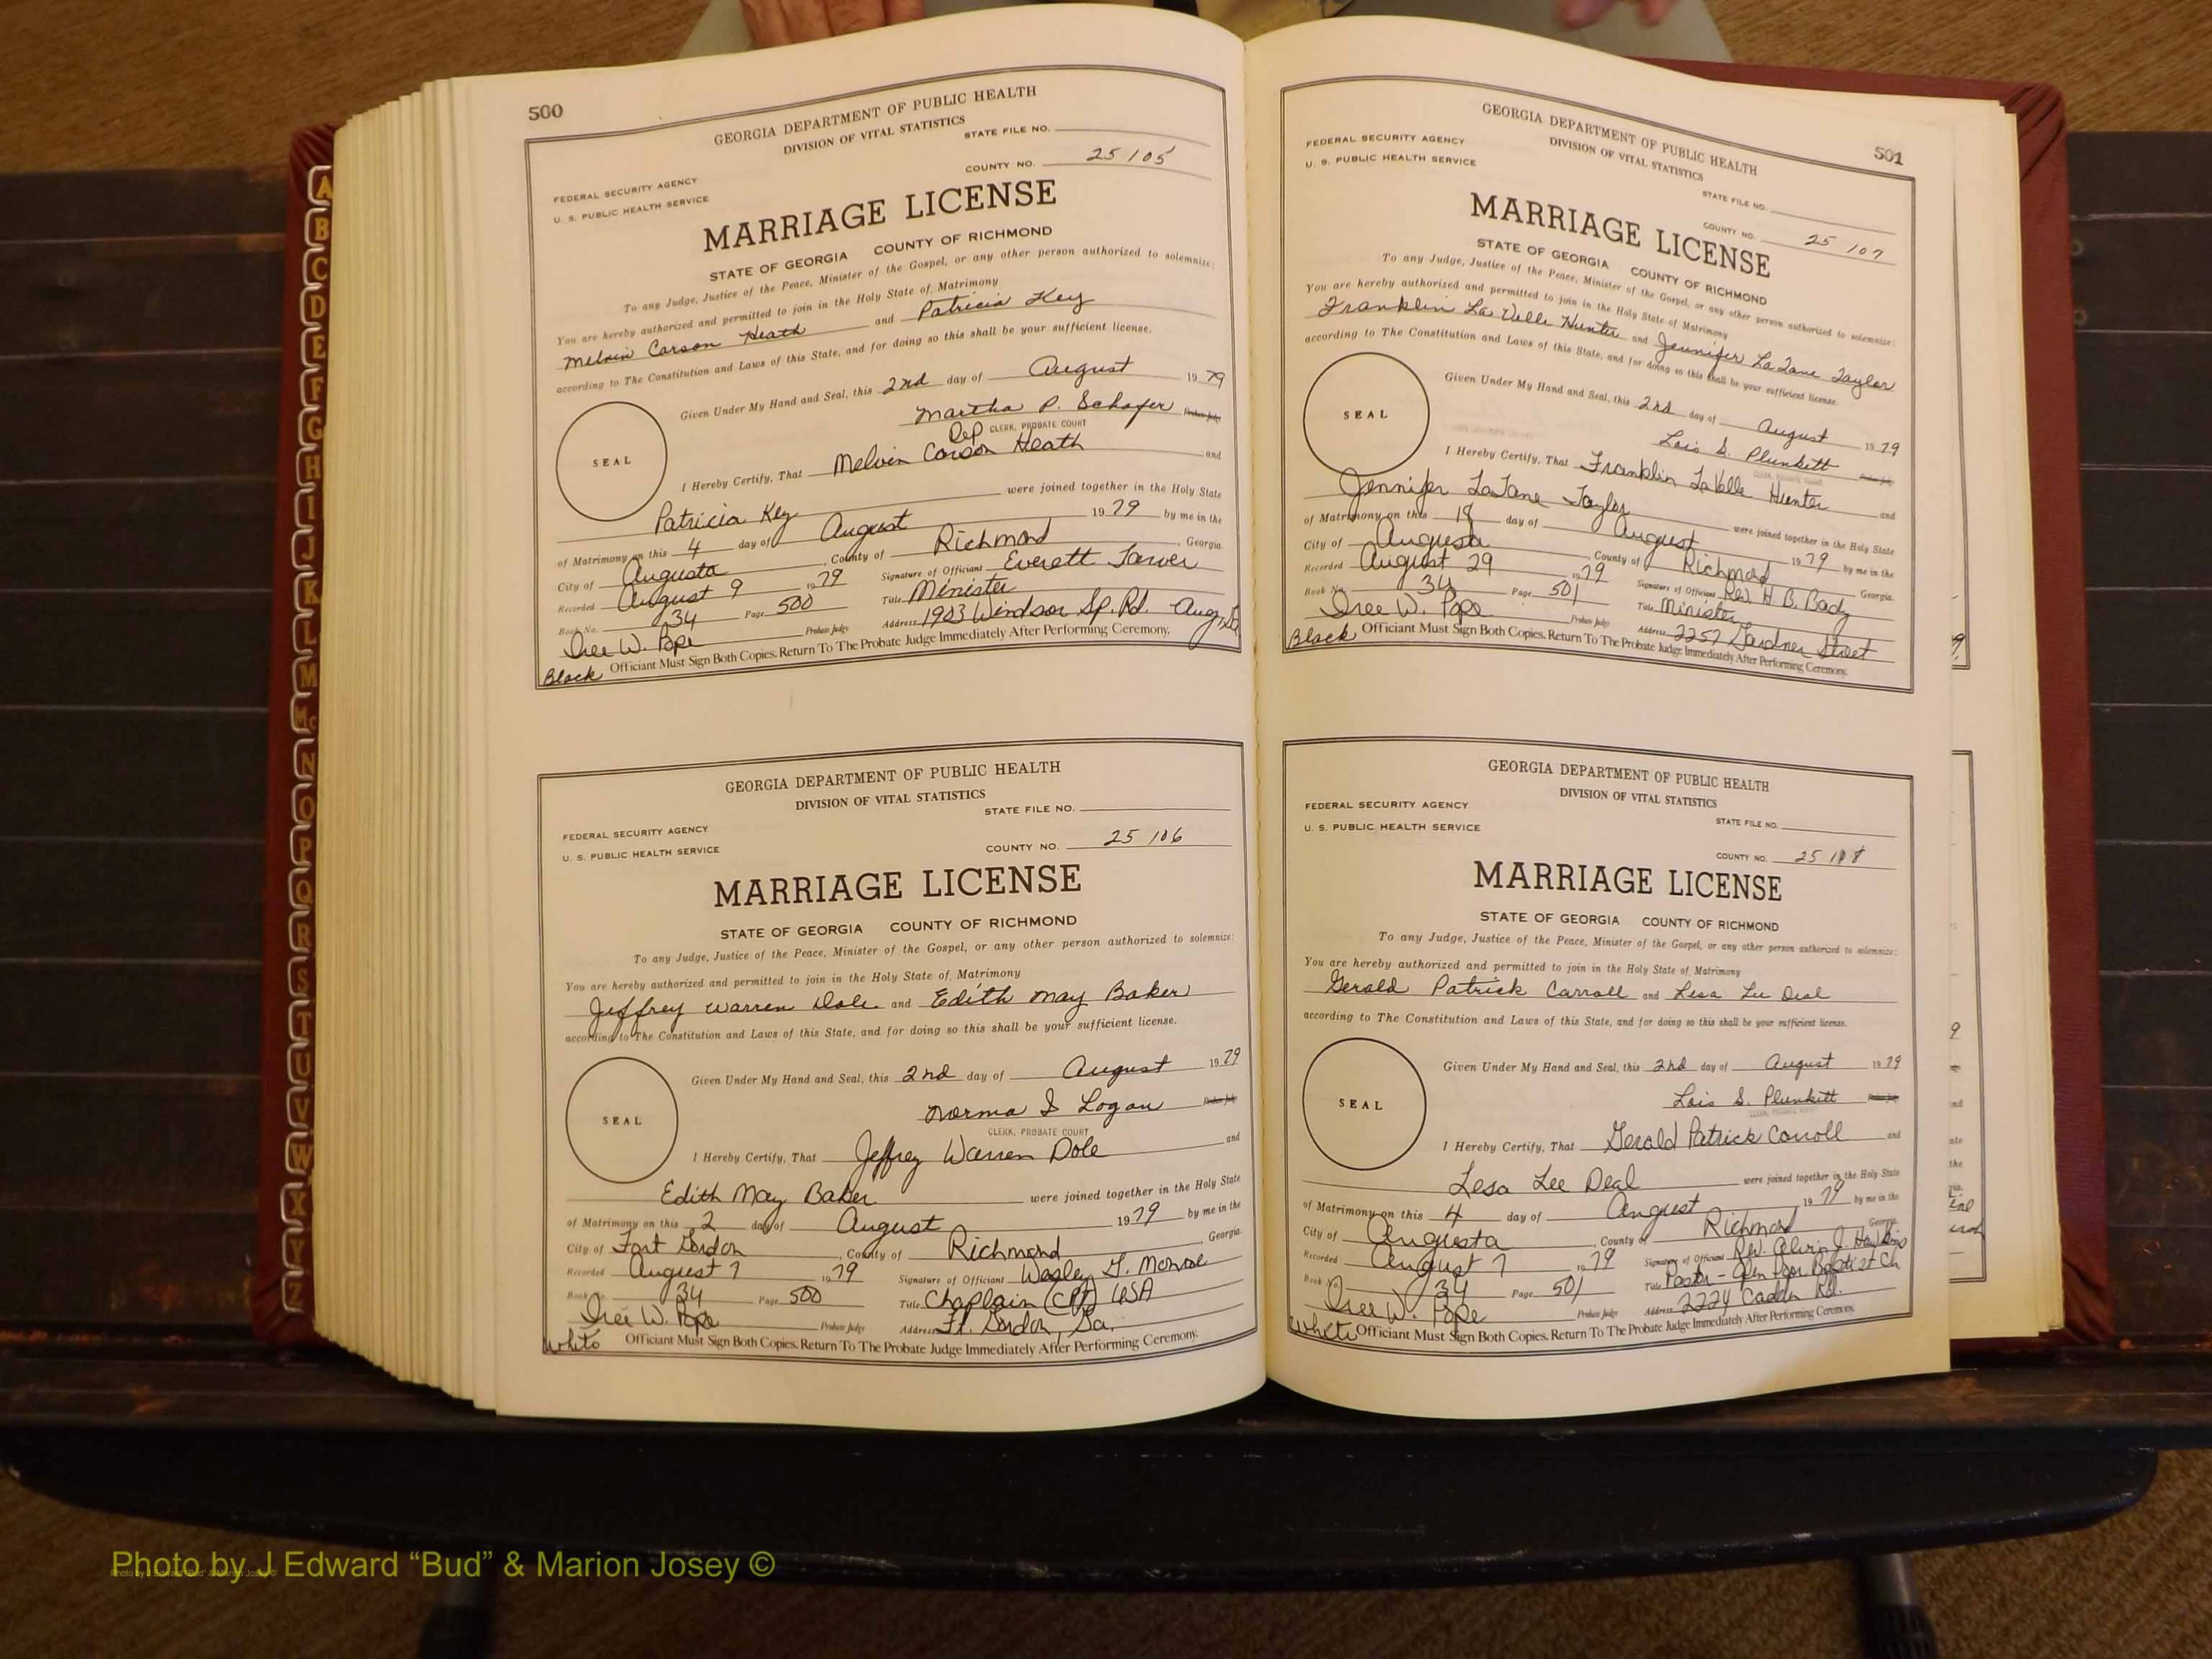 A
B
C
D
E
F
G
H
I
J
K
L
M
Mc
N
O
P
Q
R
S
T
U
V
W
X
Y
Z
500
GEORGIA DEPARTMENT OF PUBLIC HEALTH
DIVISION OF VITAL STATISTICS
STATE FILE NO.
COUNTY NO. 25 105
FEDERAL SECURITY AGENCY
U. S. PUBLIC HEALTH SERVICE
MARRIAGE LICENSE
STATE OF GEORGIA COUNTY OF RICHMOND
To any Judge, Justice of the Peace, Minister of the Gospel, or any other person authorized to solemnize:
You are hereby authorized and permitted to join in the Holy State of Matrimony
Melvin Carson Heath and Patricia Key
according to The Constitution and Laws of this State, and for doing so this shall be your sufficient license.
Given Under My Hand and Seal, this 2nd day of August 1979
Martha P. Schafer Probate Judge
Dep CLERK, PROBATE COURT
SEAL
I Hereby Certify, That Melvin Carson Heath and
Patricia Key were joined together in the Holy State
of Matrimony on this 4 day of August 1979 by me in the
City of Augusta, County of Richmond, Georgia.
Recorded August 9 1979 Signature of Officiant Everett Tarver
Book No. 34 Page 500 Title Minister
Iree W. Pope Probate Judge Address 1903 Windsor Sp. Rd. Aug, Ga
Black Officiant Must Sign Both Copies. Return To The Probate Judge Immediately After Performing Ceremony.
GEORGIA DEPARTMENT OF PUBLIC HEALTH
DIVISION OF VITAL STATISTICS
STATE FILE NO.
FEDERAL SECURITY AGENCY
U. S. PUBLIC HEALTH SERVICE
COUNTY NO. 25 106
MARRIAGE LICENSE
STATE OF GEORGIA COUNTY OF RICHMOND
To any Judge, Justice of the Peace, Minister of the Gospel, or any other person authorized to solemnize:
You are hereby authorized and permitted to join in the Holy State of Matrimony
Jeffrey Warren Dole and Edith May Baker
according to The Constitution and Laws of this State, and for doing so this shall be your sufficient license.
Given Under My Hand and Seal, this 2nd day of August 1979
Norma I Logan Probate Judge
CLERK, PROBATE COURT
SEAL
I Hereby Certify, That Jeffrey Warren Dole and
Edith May Baker were joined together in the Holy State
of Matrimony on this 2 day of August 1979 by me in the
City of Fort Gordon, County of Richmond Georgia.
Recorded August 7 1979 Signature of Officiant Wesley G. Monroe
Book No. 34 Page 500 Title Chaplain (CPT) USA
Iree W. Pope Probate Judge Address Ft. Gordon, Ga.
White Officiant Must Sign Both Copies. Return To The Probate Judge Immediately After Performing Ceremony.
501
GEORGIA DEPARTMENT OF PUBLIC HEALTH
DIVISION OF VITAL STATISTICS
FEDERAL SECURITY AGENCY
U. S. PUBLIC HEALTH SERVICE
STATE FILE NO.
COUNTY NO. 25 107
MARRIAGE LICENSE
STATE OF GEORGIA COUNTY OF RICHMOND
To any Judge, Justice of the Peace, Minister of the Gospel, or any other person authorized to solemnize:
You are hereby authorized and permitted to join in the Holy State of Matrimony
Franklin La Velle Hunter and Jennifer LaJane Taylor
according to The Constitution and Laws of this State, and for doing so this shall be your sufficient license.
Given Under My Hand and Seal, this 2nd day of August 1979
Lois S. Plunkett Probate Judge
CLERK, PROBATE COURT
SEAL
I Hereby Certify, That Franklin LaVelle Hunter and
Jennifer LaJane Taylor were joined together in the Holy State
of Matrimony on this 18 day of August 1979 by me in the
City of Augusta, County of Richmond Georgia.
Recorded August 29 1979 Signature of Officiant Rev. H B. Bady
Book No. 34 Page 501 Title Minister
Iree W. Pope Probate Judge Address 2257 Gardner Street
Black Officiant Must Sign Both Copies. Return To The Probate Judge Immediately After Performing Ceremony.
GEORGIA DEPARTMENT OF PUBLIC HEALTH
DIVISION OF VITAL STATISTICS
FEDERAL SECURITY AGENCY
U. S. PUBLIC HEALTH SERVICE
STATE FILE NO.
COUNTY NO. 25 108
MARRIAGE LICENSE
STATE OF GEORGIA COUNTY OF RICHMOND
To any Judge, Justice of the Peace, Minister of the Gospel, or any other person authorized to solemnize:
You are hereby authorized and permitted to join in the Holy State of Matrimony
Gerald Patrick Carroll and Lesa Lee Deal
according to The Constitution and Laws of this State, and for doing so this shall be your sufficient license.
Given Under My Hand and Seal, this 2nd day of August 1979
Lois S. Plunkett Probate Judge
CLERK, PROBATE COURT
SEAL
I Hereby Certify, That Gerald Patrick Carroll and
Lesa Lee Deal were joined together in the Holy State
of Matrimony on this 4 day of August 1979 by me in the
City of Augusta County of Richmond Georgia.
Recorded August 7 1979 Signature of Officiant Rev. Alvin J. Hawkins
Book No. 34 Page 501 Title Pastor - Baptist Ch
Iree W. Pope Probate Judge Address 2224 Rd.
White Officiant Must Sign Both Copies. Return To The Probate Judge Immediately After Performing Ceremony.
Photo by J Edward “Bud” & Marion Josey ©